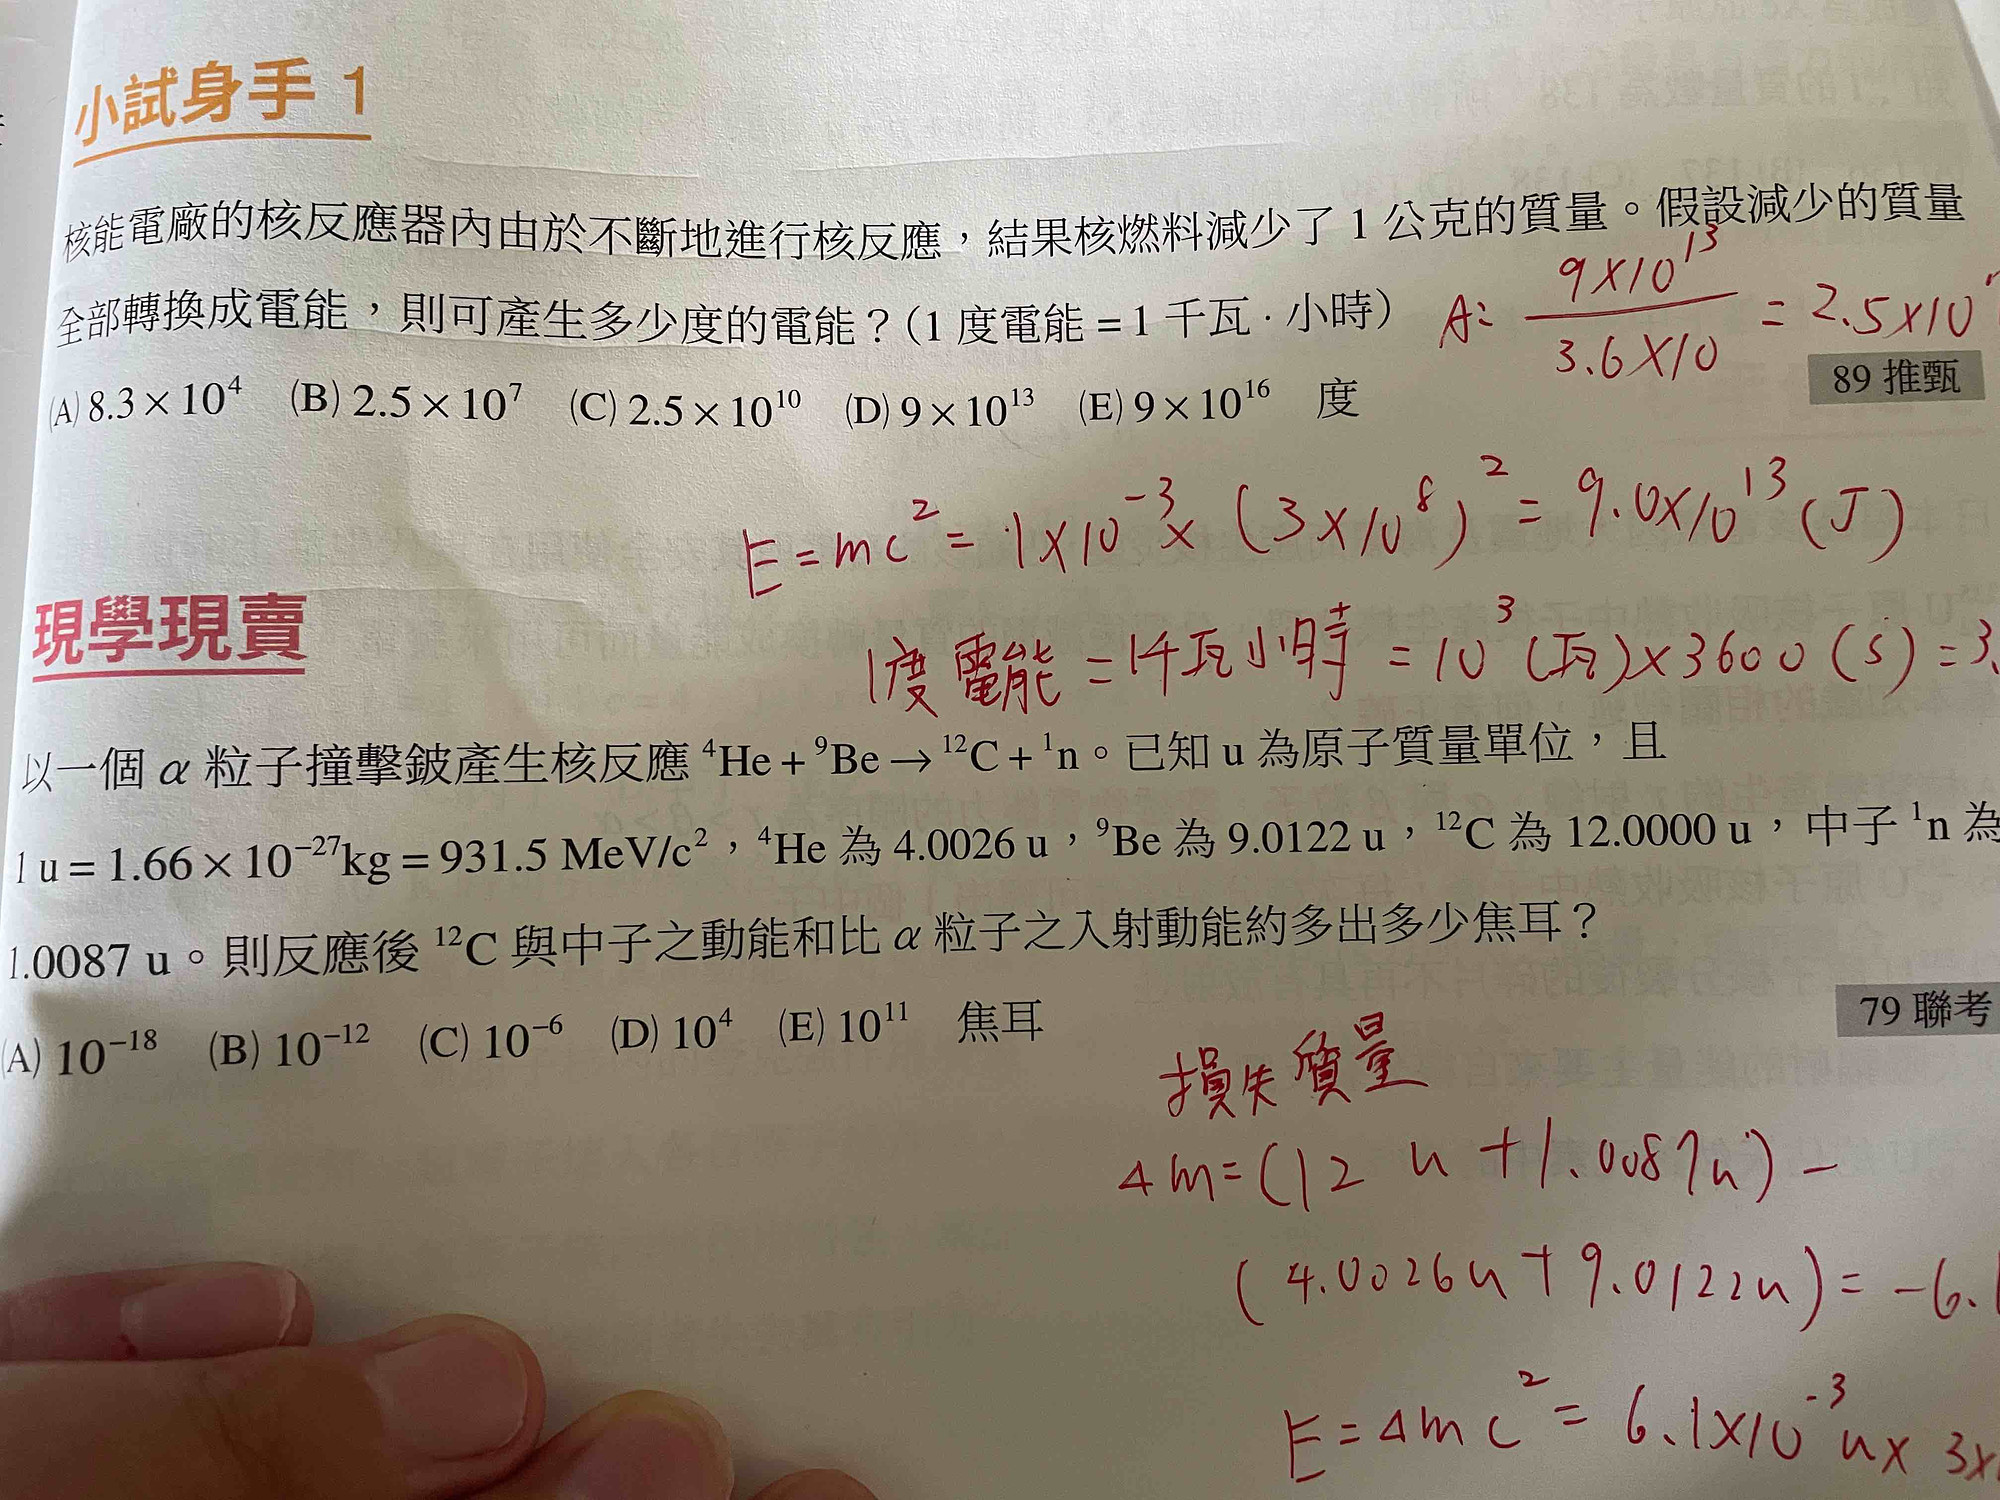 小試身手 1
核能電廠的核反應器內由於不斷地進行核反應，結果核燃料減少了 1 公克的質量。假設減少的質量
全部轉換成電能，則可產生多少度的電能？（1 度電能 = 1 千瓦 · 小時）
A: 9×10¹³ / 3.6×10 = 2.5×10
89 推甄
(A) 8.3 × 10⁴ (B) 2.5 × 10⁷ (C) 2.5 × 10¹⁰ (D) 9 × 10¹³ (E) 9 × 10¹⁶ 度
E = mc² = 1×10⁻³ × (3×10⁸)² = 9.0×10¹³ (J)
現學現賣
1度電能 = 1千瓦小時 = 10³ (瓦) × 3600 (s) = 3.
以一個 α 粒子撞擊鈹產生核反應 ⁴He + ⁹Be → ¹²C + ¹n。已知 u 為原子質量單位，且
1 u = 1.66 × 10⁻²⁷kg = 931.5 MeV/c²，⁴He 為 4.0026 u，⁹Be 為 9.0122 u，¹²C 為 12.0000 u，中子 ¹n 為
1.0087 u。則反應後 ¹²C 與中子之動能和比 α 粒子之入射動能約多出多少焦耳？
79 聯考
(A) 10⁻¹⁸ (B) 10⁻¹² (C) 10⁻⁶ (D) 10⁴ (E) 10¹¹ 焦耳
損失質量
Δm = (12 u + 1.0087u) −
(4.0026u + 9.0122u) = −6.1
E = Δmc² = 6.1×10⁻³ u × 3×